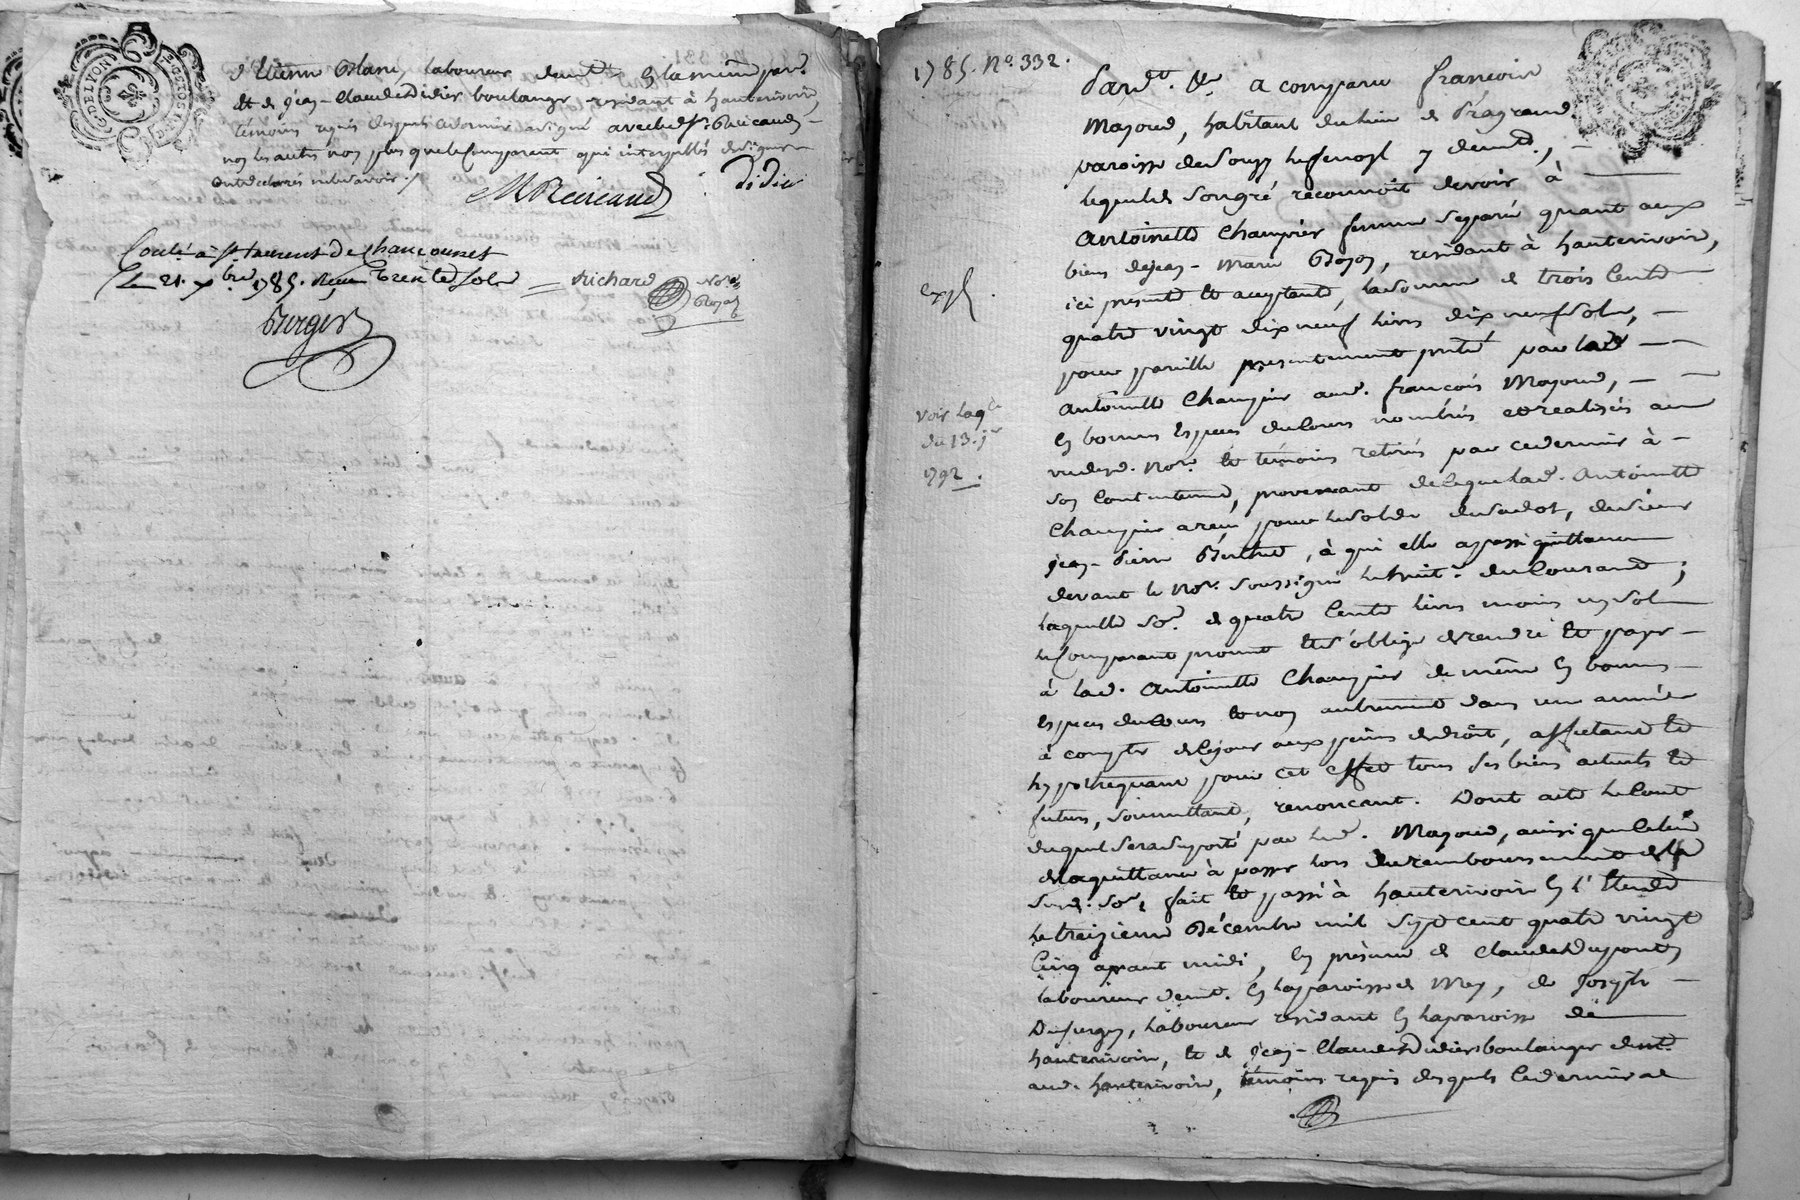 d'Etienne Blanc, laboureur demt. en la même par.
et de jean-Claude Didier boulanger residant à hauterivoire,
témoins requis desquels ce dernier a signé avec led. sr.
non les autres non plus que le Comparant qui interpellés de signer
ont declarés ne le savoir ./.
Didier
Conlé à St. Laurent de Chamousset
Le 21. xbre 1785. Reçu trente sols
Richard
Notre.
Royal
Berger
G. DE LYON
1785. No. 332.
Pardt. &a. a comparu françois
Mayoud, habitant du lieu de
paroisse de y demt., –
lequel de son gré reconnoit devoir à
Antoinette Champier femme separée quant aux
biens de jean-Marie residant à hauterivoire,
ici presente et acceptante, la somme de trois Cents
quatre vingt dix neuf livres dix neuf sols, –
pour pareille presentement preté par lad. –
Antoinette Champier aud. françois Mayoud, –
en bonnes Especes du Cours nombrés et realisés au
vu dud. Nore. et témoins retirés par ce dernier à –
son Contentement, provenant de ce que lad. Antoinette
Champier a reçu pour le solde de sa dot, du sieur
jean-Pierre , à qui elle a passé quittance
devant le Nore. soussigné le huit du Courant ;
laquelle So.e de quatre Cents livres moins un sol
le Comparant promet et s'oblige de rendre et payer –
à lad. Antoinette Champier de même en bonnes –
Especes du Cours et non autrement dans une année
à compter de ce jour aux peines de droit, affectant et
hypothequant pour cet effet tous ses biens actuels et
futurs, soumettant, renoncant. Dont acte le Cout
duquel sera suporté par led. Mayoud, ainsi que celui
de la quittance à passer lors du remboursement de la
susd. So.e, fait et passé à hauterivoire en l'Etude
le treizieme Décembre mil sept cent quatre vingt
Cinq avant midi, en présence de Claude Dupont
laboureur demt. en la paroisse de Meys, de Joseph –
laboureur residant en la paroisse de
hauterivoire, et de jean-Claude Didier boulanger demt.
aud. hauterivoire, témoins requis desquels ce dernier a
expé.
Voir la qce
du 13. jer
1792.